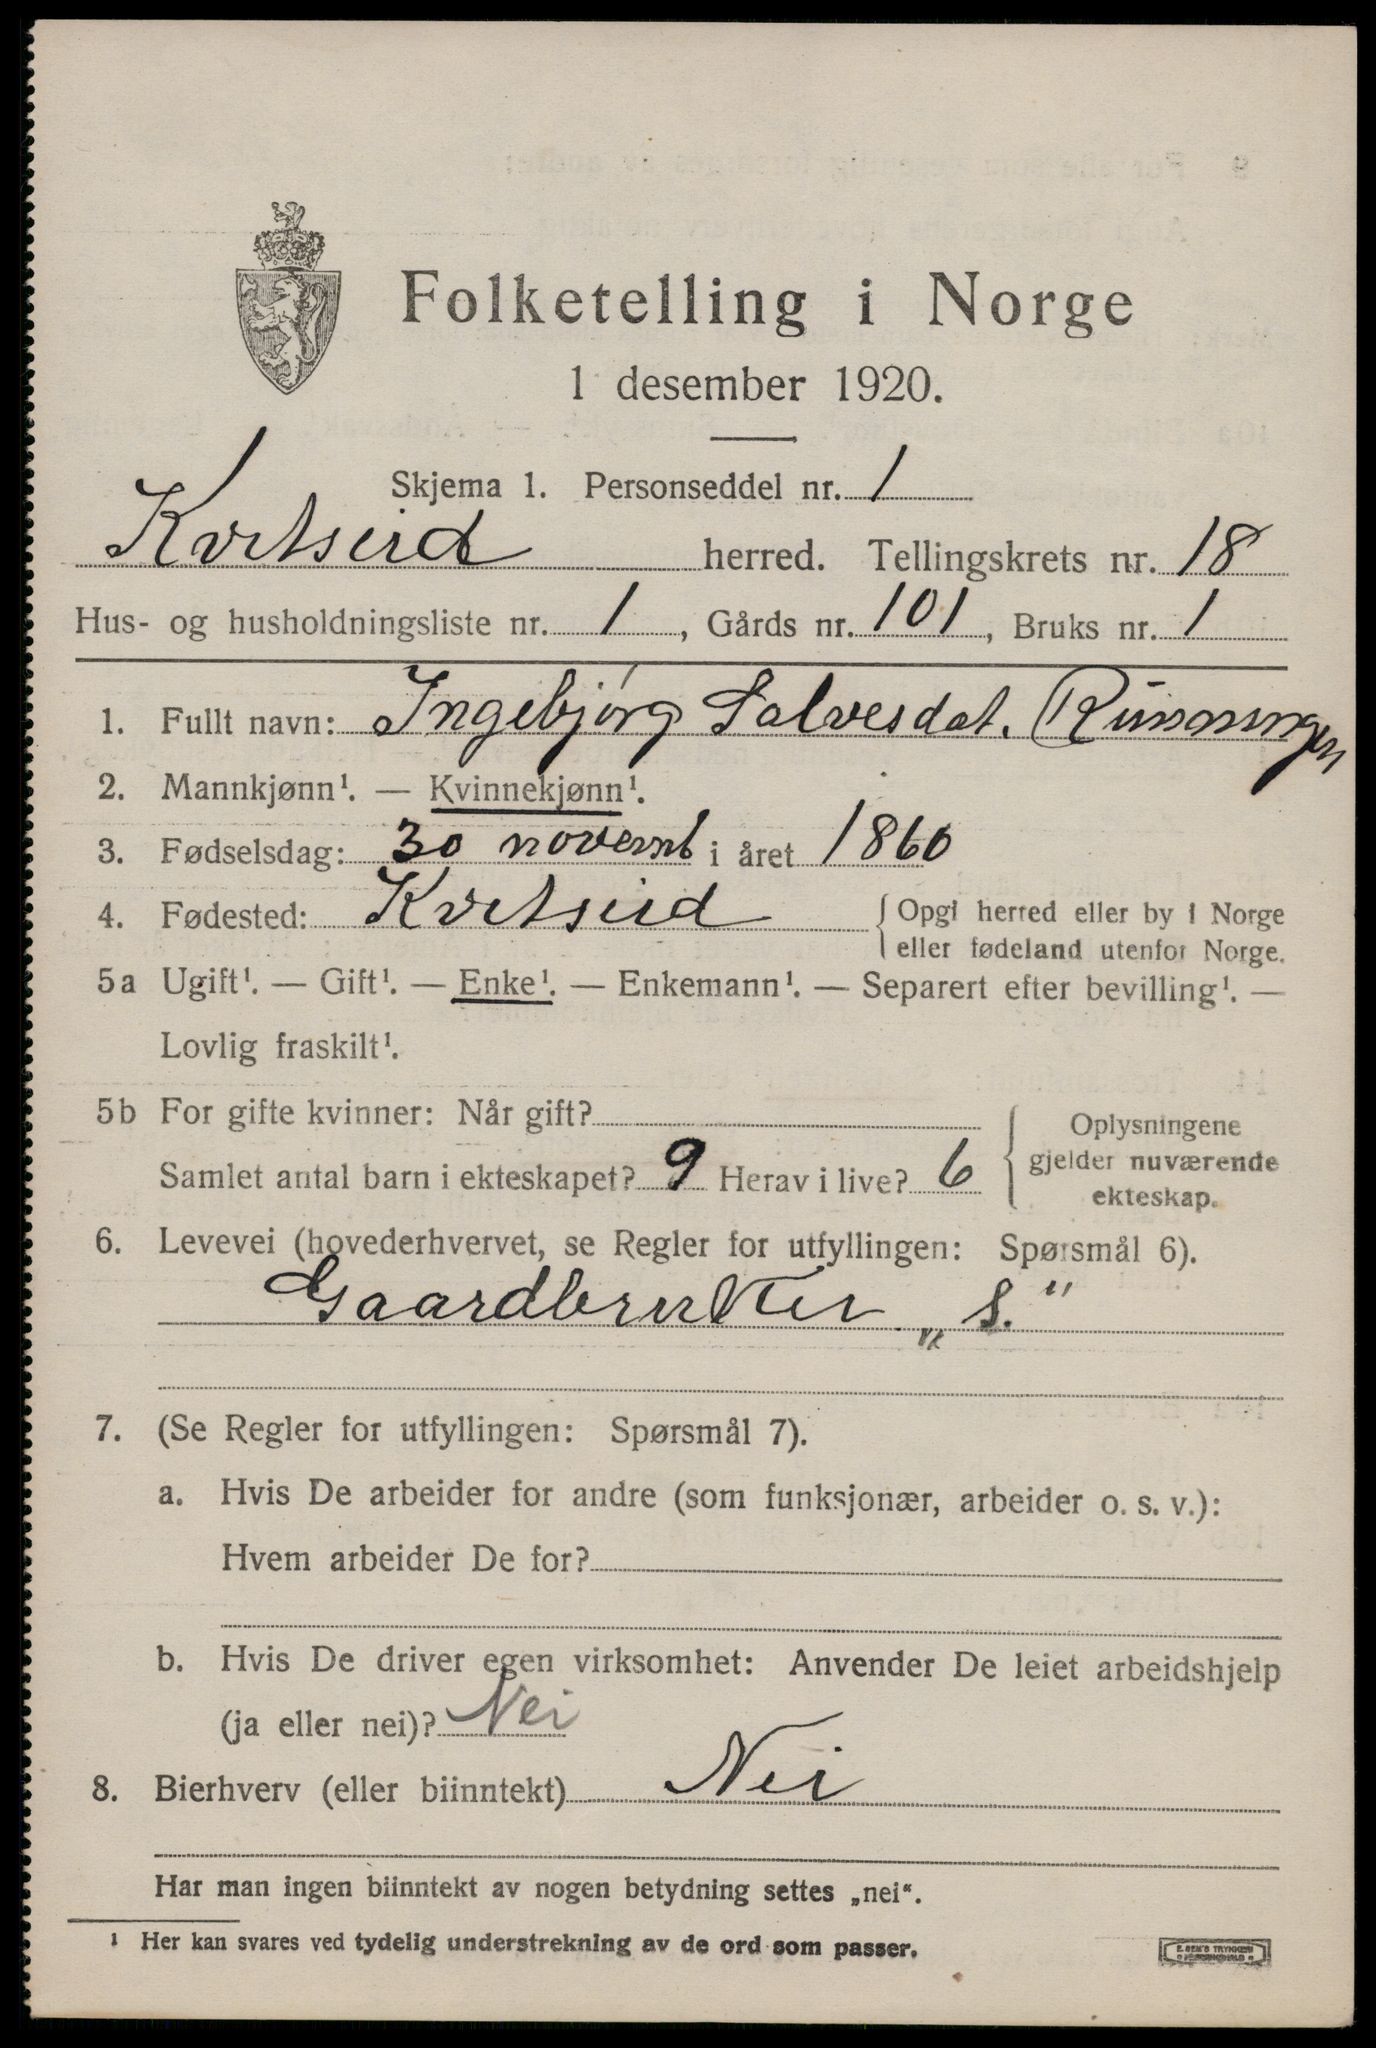 Folketelling i Norge
1 desember 1920.
Skjema 1. Personseddel nr. 1
Kvitseid herred. Tellingskrets nr. 18
Hus- og husholdningsliste nr. 1, Gårds nr. 101, Bruks nr. 1
1. Fullt navn: Ingebjørg Salvesdat. Rünningen
2. Mannkjønn¹. — Kvinnekjønn¹.
3. Fødselsdag: 30 novemb i året 1860
4. Fødested: Kvitseid { Opgi herred eller by i Norge
eller fødeland utenfor Norge.
5a Ugift¹. — Gift¹. — Enke¹. — Enkemann¹. — Separert efter bevilling¹. —
Lovlig fraskilt¹.
5b For gifte kvinner: Når gift?
Samlet antal barn i ekteskapet? 9 Herav i live? 6
{ Oplysningene
gjelder nuværende
ekteskap.
6. Levevei (hovederhvervet, se Regler for utfyllingen: Spørsmål 6).
Gaardbruker „S.“
7. (Se Regler for utfyllingen: Spørsmål 7).
a. Hvis De arbeider for andre (som funksjonær, arbeider o. s. v.):
Hvem arbeider De for?
b. Hvis De driver egen virksomhet: Anvender De leiet arbeidshjelp
(ja eller nei)? Nei
8. Bierhverv (eller biinntekt) Nei
Har man ingen biinntekt av nogen betydning settes „nei“.
¹ Her kan svares ved tydelig understrekning av de ord som passer.
E. SEM'S TRYKKERI